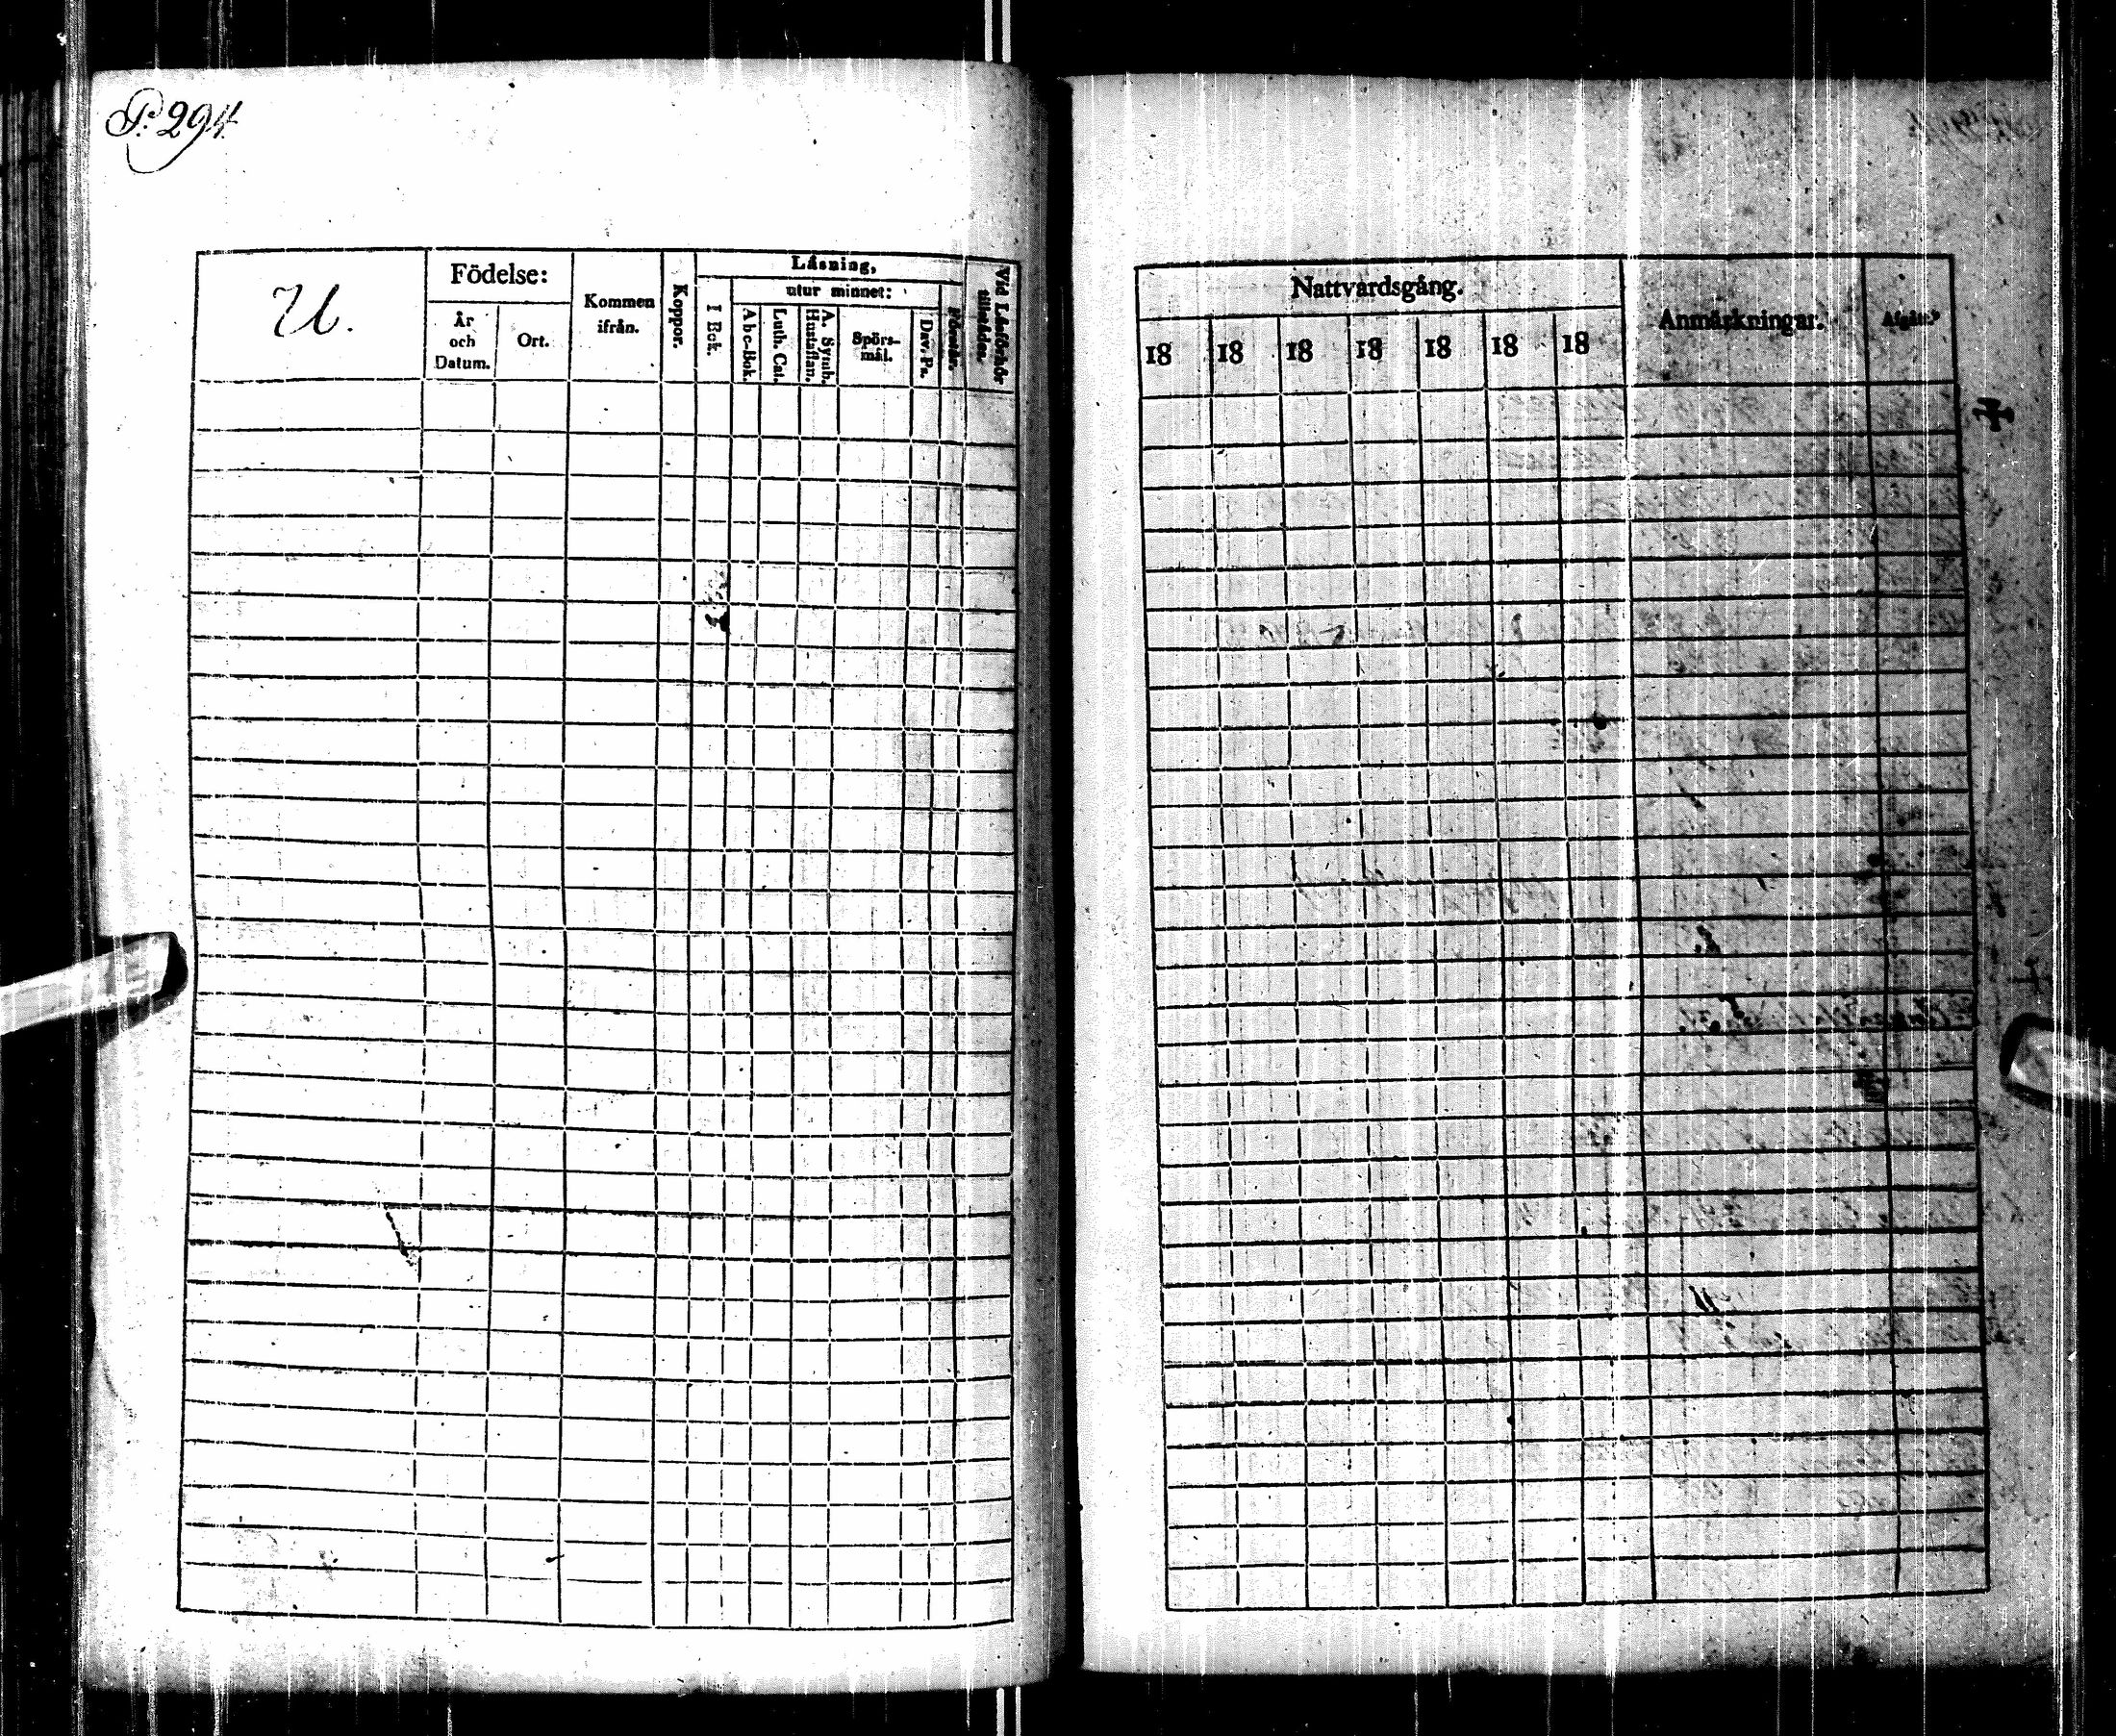 P. 294.
U.
Födelse:
År
och
Datum.
Ort.
Kommen
ifrån.
Koppor.
Läsning,
I Bok.
utur minnet:
Abc-Bok.
Luth. Cat.
A. Symb.
Hustaflan.
Spörs-
mål.
Dav. Ps.
Förstår.
Vid Läsförhör
tillstädes.
Nattvardsgång.
18 18 18 18 18 18 18
Anmärkningar.
Afgått.